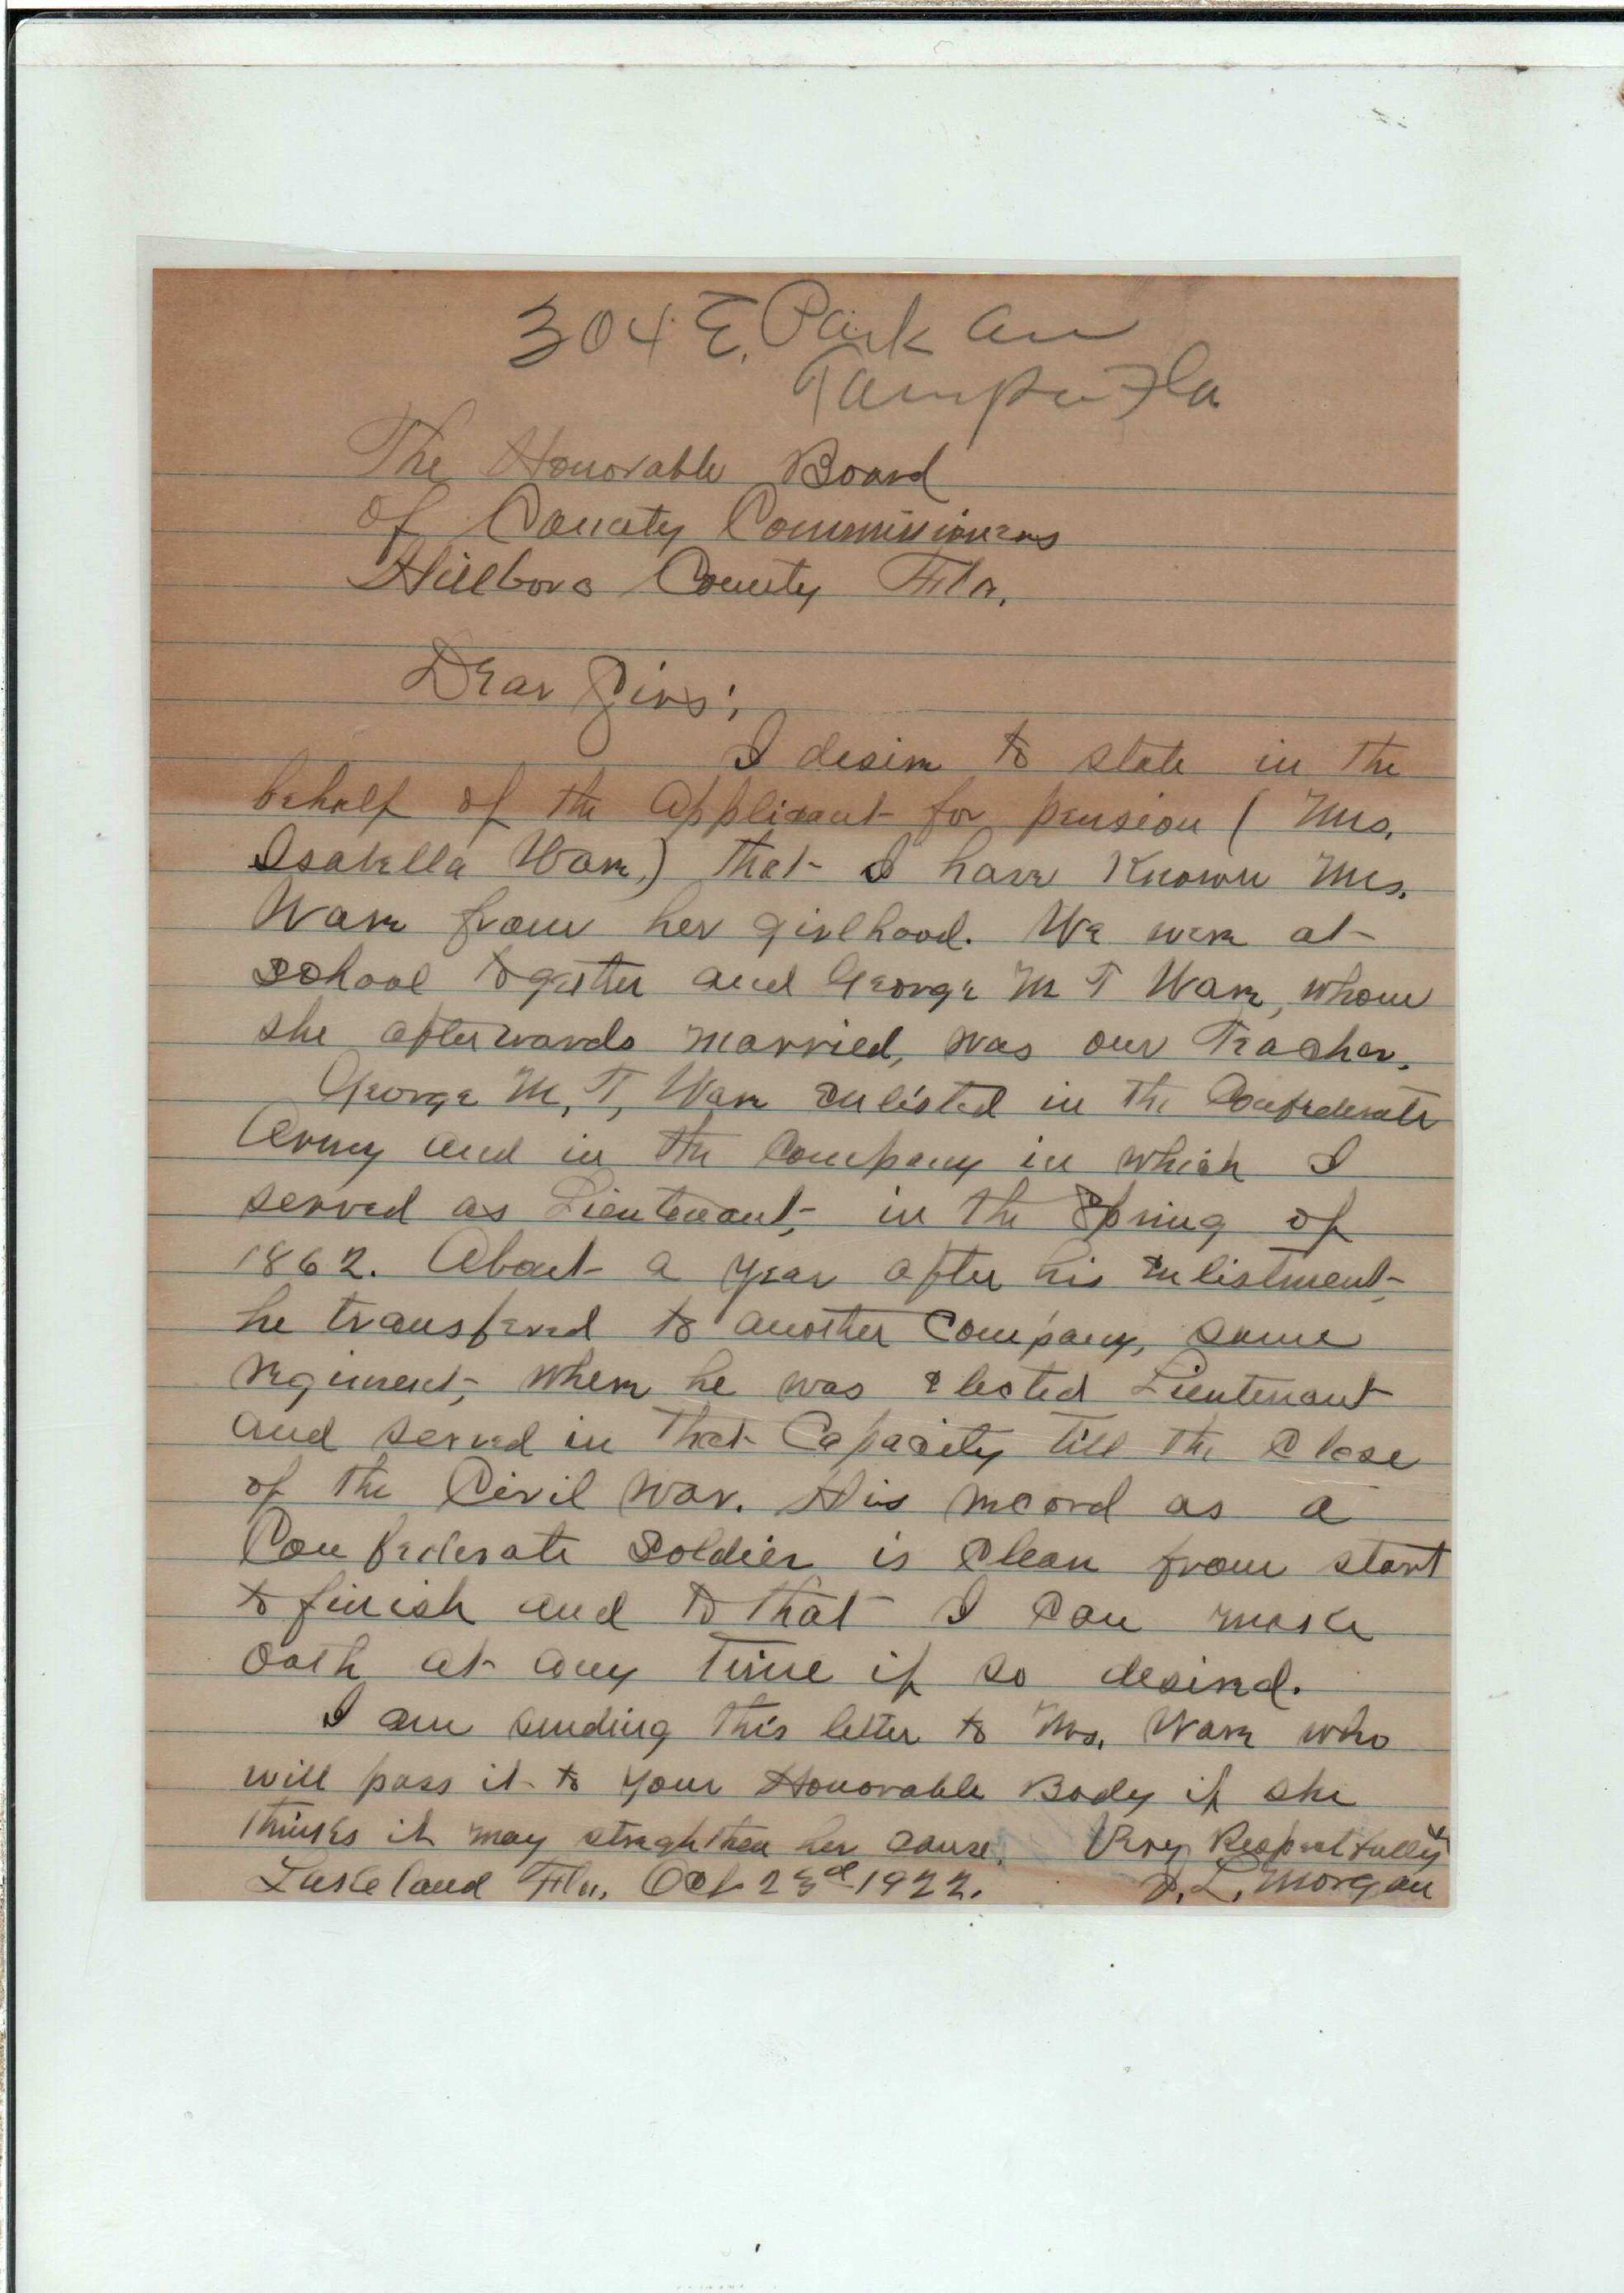 304 E. Park Ave
Tampa Fla.
The Honorable Board
of County Commissioners
Hillboro County Fla.
Dear Sirs;
I desire to state in the
behalf of the applicant for pension ( Mrs.
Isabella Ware,) that I have Known Mrs.
Ware from her girlhood. We were at
school together and George M T Ware, whom
she afterwards married, was our Teacher.
George M, T, Ware enlisted in the Confederate
Army and in the Company in which I
served as Lieutenant, in the Spring of
1862. About a year after his enlistment,
he transfered to another Company, same
regiment, where he was elected Lieutenant
and served in that Capacity till the Close
of the Civil War. His record as a
Confederate Soldier is Clean from start
to finish and to that I Can make
Oath at any Time if so desired.
I am sending this letter to Mrs. Ware who
will pass it to your Honorable Body if she
thinks it may streghthen her cause. Very Respectfully
Lakeland Fla, Oct 23d 1922. J. L. Morgan